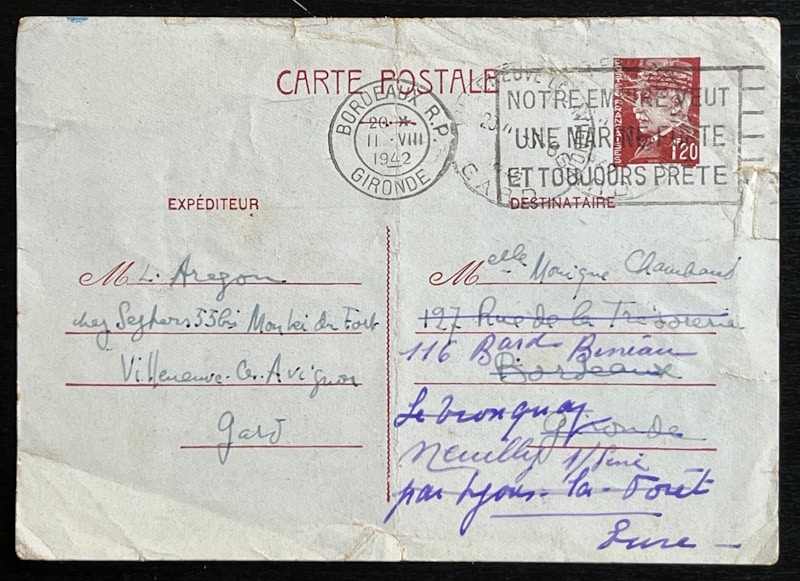 CARTE POSTALE
BORDEAUX R.P.
20 - X
11 - VIII
1942
GIRONDE
NOTRE EMPIRE VEUT
UNE MARINE FORTE
ET TOUJOURS PRETE
GARD
1F20
EXPÉDITEUR
DESTINATAIRE
M L. Aragon
chez Seghers 33bis Montée du Fort
Villeneuve-les-Avignon
Gard
Melle Monique Chambaud
127 Rue de la Trésorerie
116 Bard Bineau
Bordeaux
Le Tronquay
Gironde
Neuilly s/Seine
par Lyons-la-Forêt
Eure